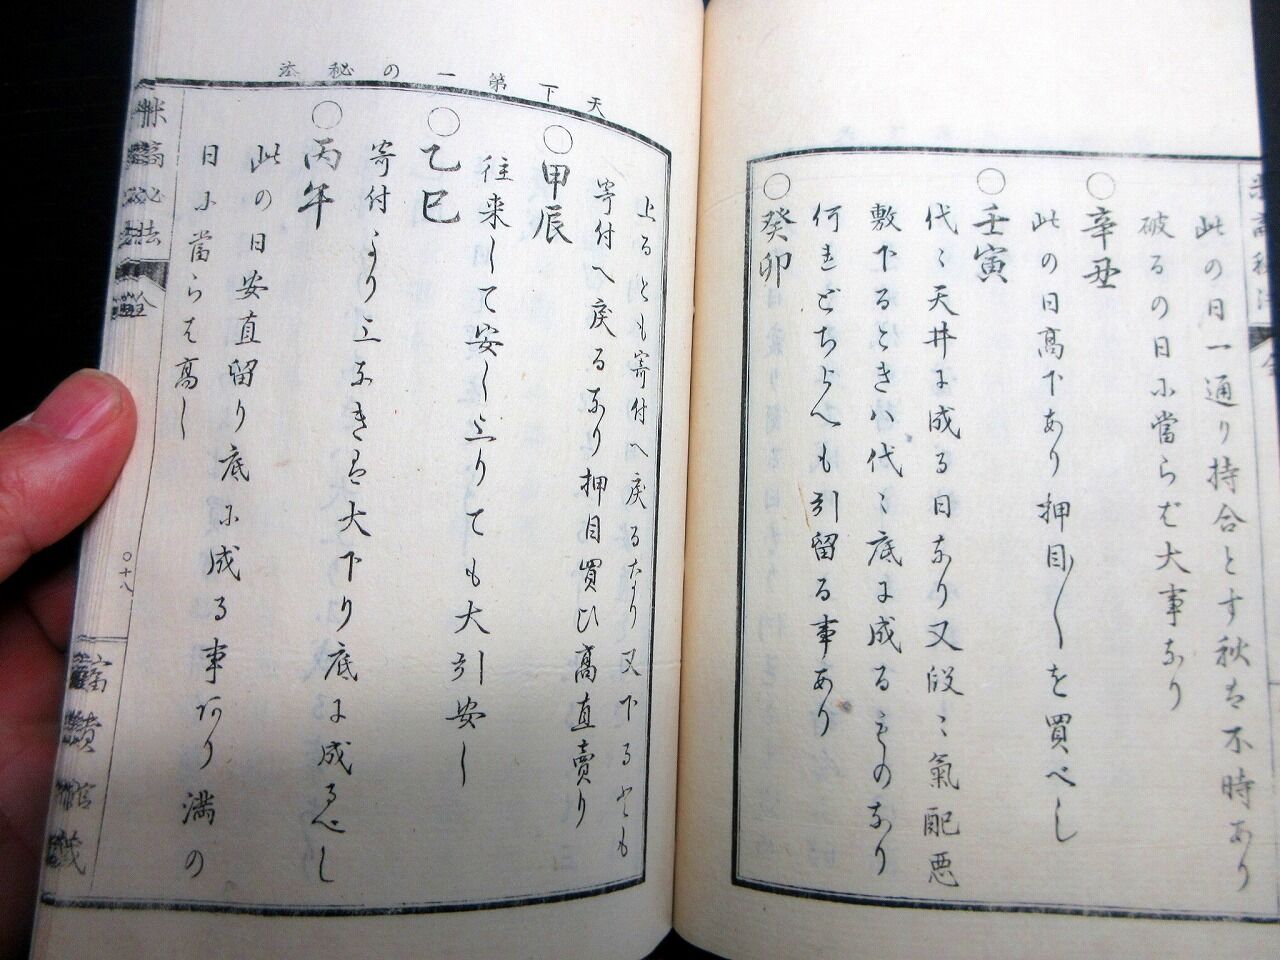 此の日一通り持合とす秋は不時あり
破るの日に當らば大事なり
〇辛丑
此の日高下あり押目〱を買べし
〇壬寅
代〻天井に成る日なり又段〻氣配悪
敷下るときハ代〻底に成るものなり
何れどちらへも引留る事あり
〇癸卯
天下第一の秘法
上るとも寄付へ戻るなり又下るとも
寄付へ戻るなり押目買ひ高直賣り
〇甲辰
往来して安し上りても大引安し
〇乙巳
寄付より上なき是大下り底に成るべし
〇丙午
此の日安直留り底に成る事あり満の
日に當らば高し
米商秘法
全
〇十八